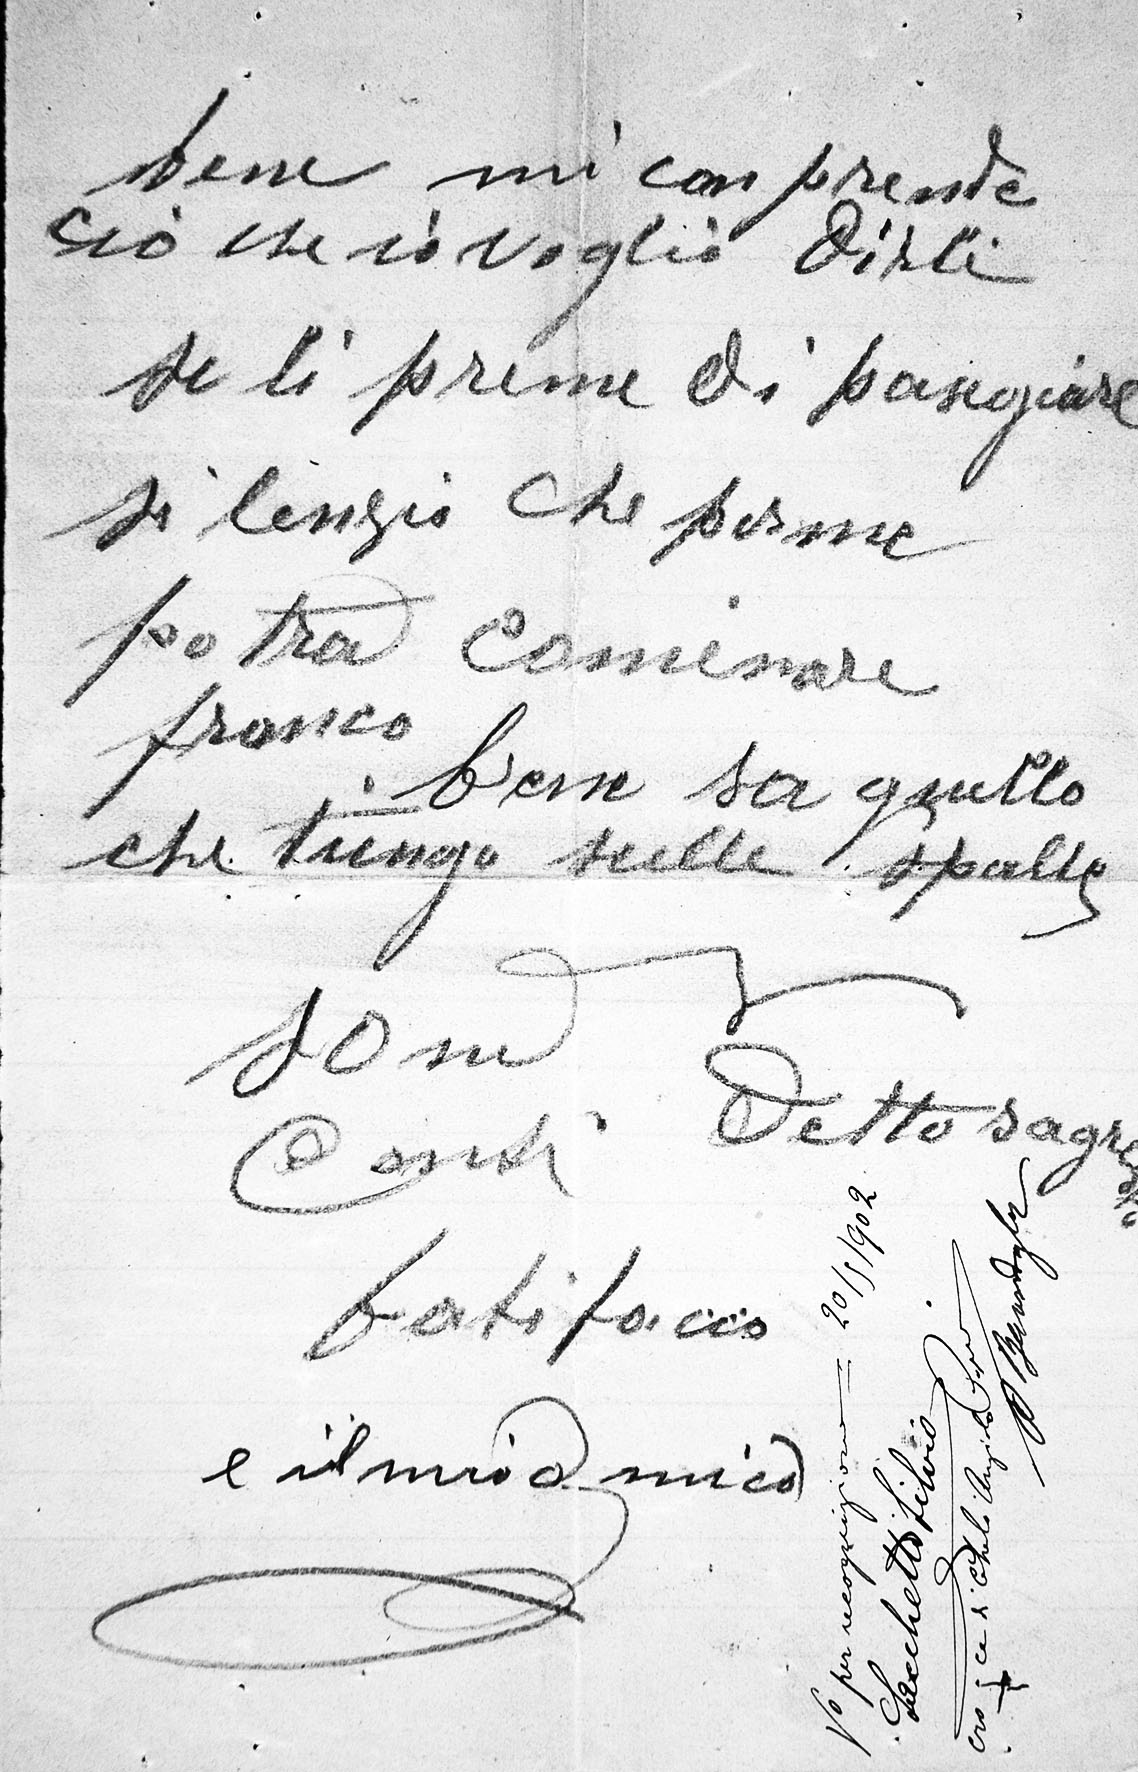 bene mi con prende
ciò che io voglio dirli
se li preme di pasegiare
si lenzio che per me
potrà caminare
franco
bene sa quello
che tiengo sulle spalle
sono
Conti detto sagr
batifaccio
e il mio amico
Vo per recognizione = 20/5/902
Sacchetti Silvio
croce di Angilo